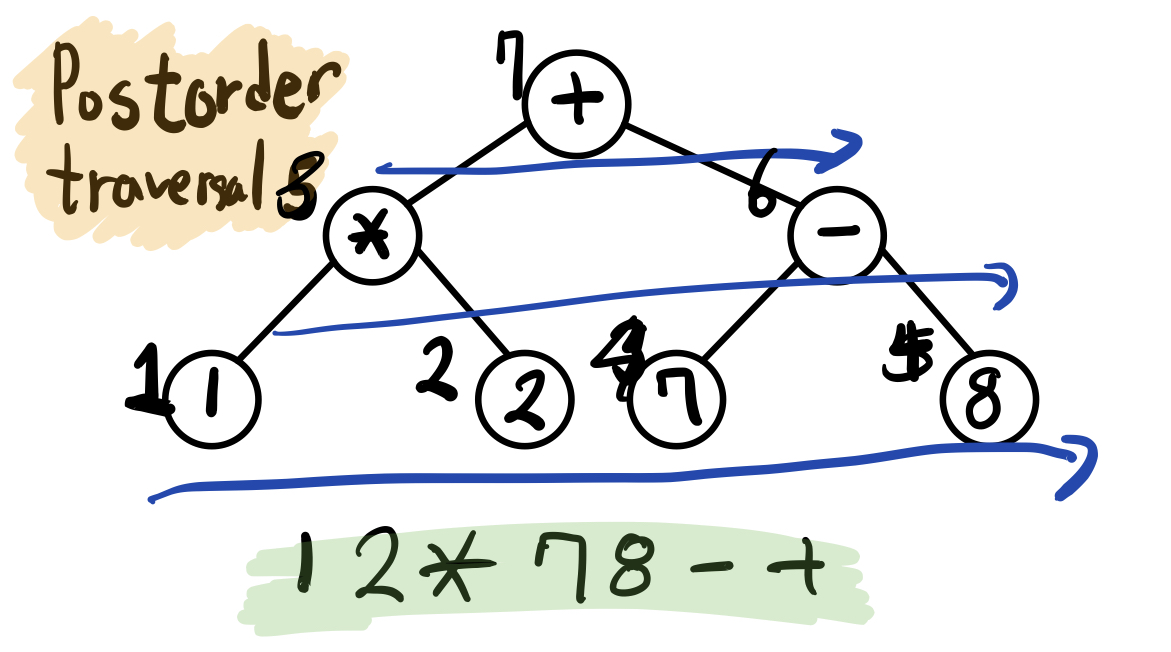 Postorder
traversal
7
+
3
*
6
-
1
1
2
2
7
8
1 2 * 7 8 - +